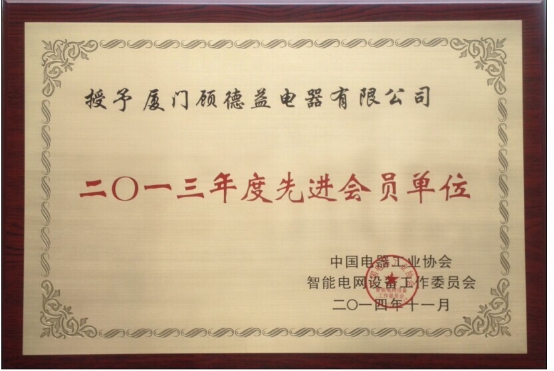 授予厦门顾德益电器有限公司
二〇一三年度先进会员单位
中国电器工业协会
智能电网设备工作委员会
二〇一四年十一月